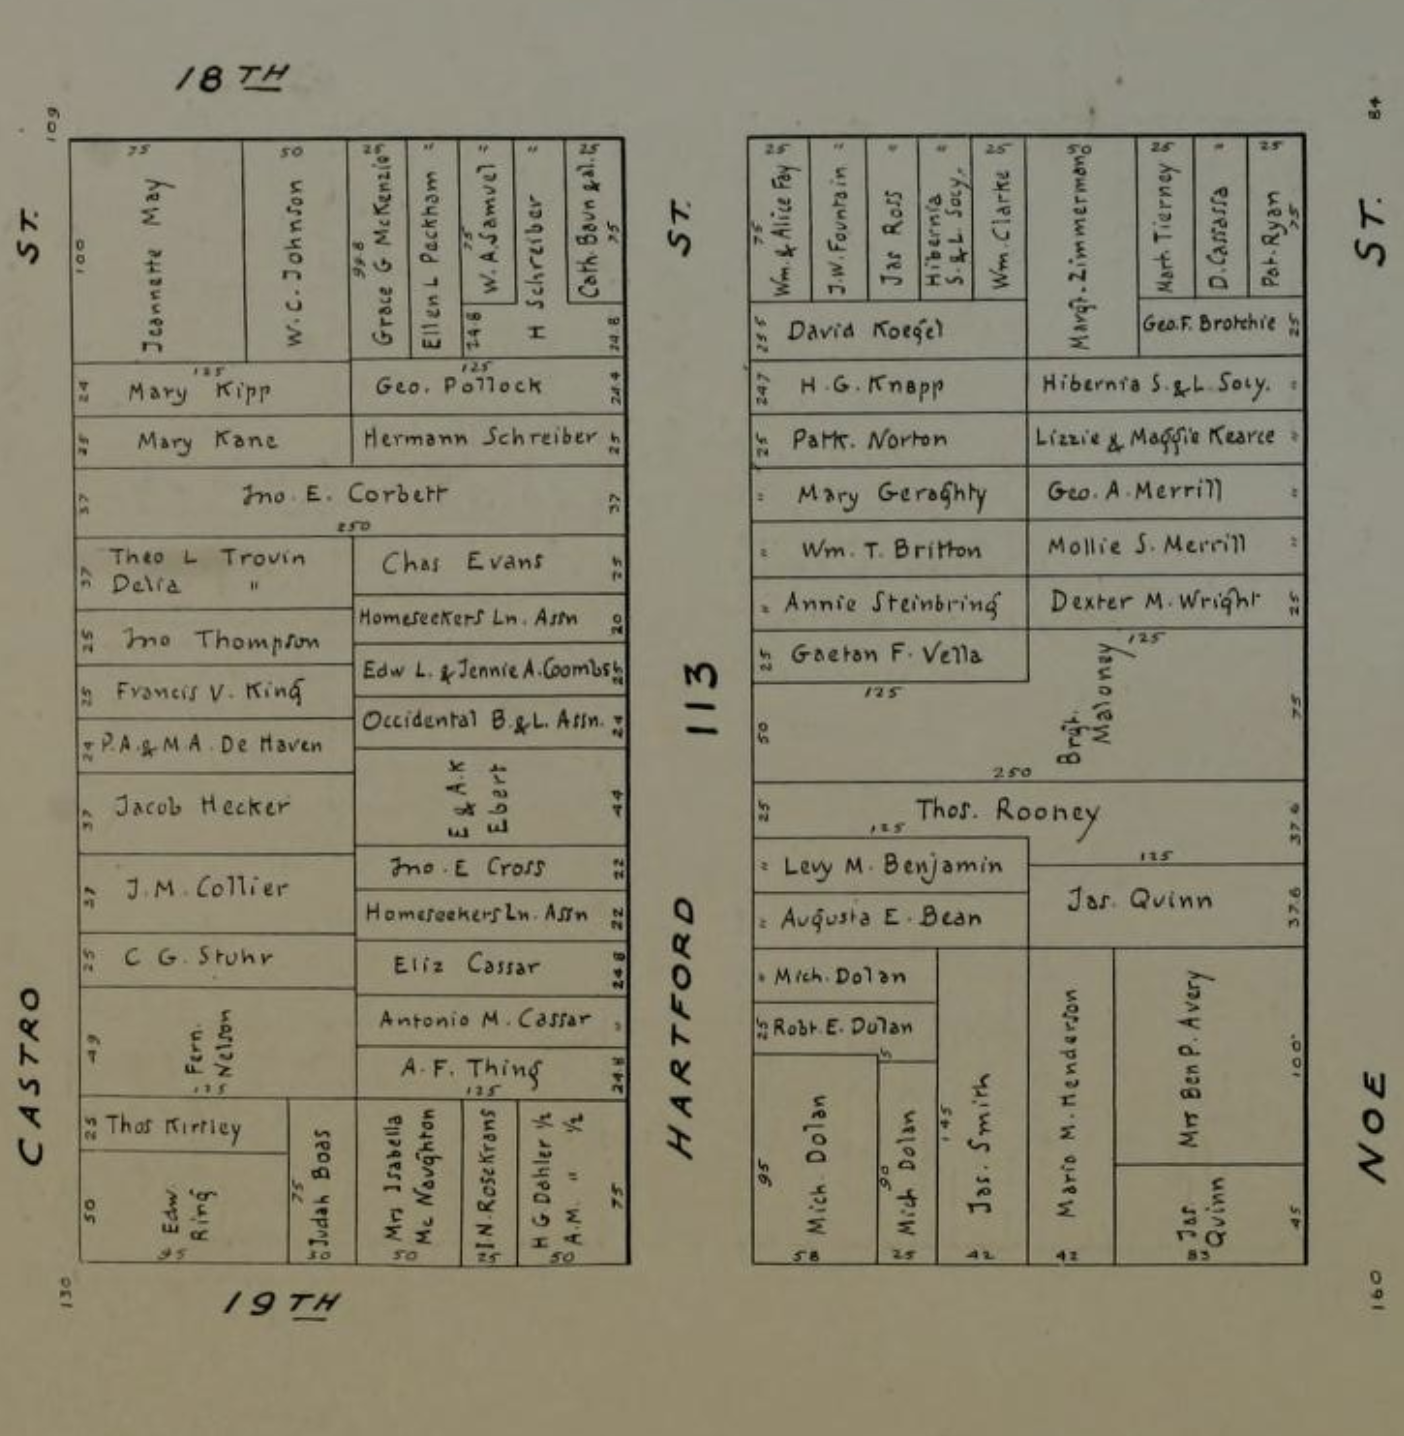 18TH
109
84
CASTRO ST.
HARTFORD ST.
NOE ST.
113
75
100
Jeannette May
50
W. C. Johnson
25
99.8
Grace G McKenzie
"
Ellen L Peckham
"
75
W. A. Samuel
24 8
"
H Schreiber
24.8
25
Cath. Baun & al.
75
125
24
Mary Kipp
125
Geo. Pollock
24.4
25
Mary Kane
Hermann Schreiber
25
37
Jno. E. Corbett
37
250
37
Theo L Trovin
Delia "
Chas Evans
25
Homeseekers Ln. Assn
20
25
Jno Thompson
Edw L. & Jennie A. Coombs
25
25
Francis V. King
Occidental B. & L. Assn.
24
24
P.A. & M A. De Haven
E & A.K
Ebert
44
37
Jacob Hecker
Jno. E Cross
22
37
J. M. Collier
Homeseekers Ln. Assn
22
25
C G. Stuhr
Eliz Cassar
24 8
49
Fern.
Nelson
125
Antonio M. Cassar
"
A. F. Thing
24.8
125
25
Thos Kirtley
50
Edw.
Ring
95
75
Judah Boas
Mrs Isabella
Mc Naughton
50
I. N. Rosekrans
25
H G Dahler 1/2
A.M. " 1/2
50
75
130
19TH
25
75
Wm. & Alice Fay
"
J. W. Fountain
"
Jas Ross
"
Hibernia
S. & L. Socy.
25
Wm. Clarke
50
Margt. Zimmermann
25
Mart. Tierney
"
D. Cassassa
25
Pat. Ryan
75
25 5
David Koegel
Geo. F. Brotchie
25
24 7
H. G. Knapp
Hibernia S. & L. Socy.
"
25
Patk. Norton
Lizzie & Maggie Kearce
"
"
Mary Geraghty
Geo. A. Merrill
"
"
Wm. T. Britton
Mollie S. Merrill
"
"
Annie Steinbring
Dexter M. Wright
25
25
Gaetan F. Vella
125
125
Brgt.
Maloney
75
50
250
25
Thos. Rooney
37.6
125
125
"
Levy M. Benjamin
Jas. Quinn
37.6
"
Augusta E. Bean
"
Mich. Dolan
25
Robt. E. Dolan
5
95
Mich. Dolan
58
90
Mich Dolan
25
145
Jas. Smith
42
Maria M. Henderson
42
Mrs Ben P. Avery
100
Jas.
Quinn
45
83
160